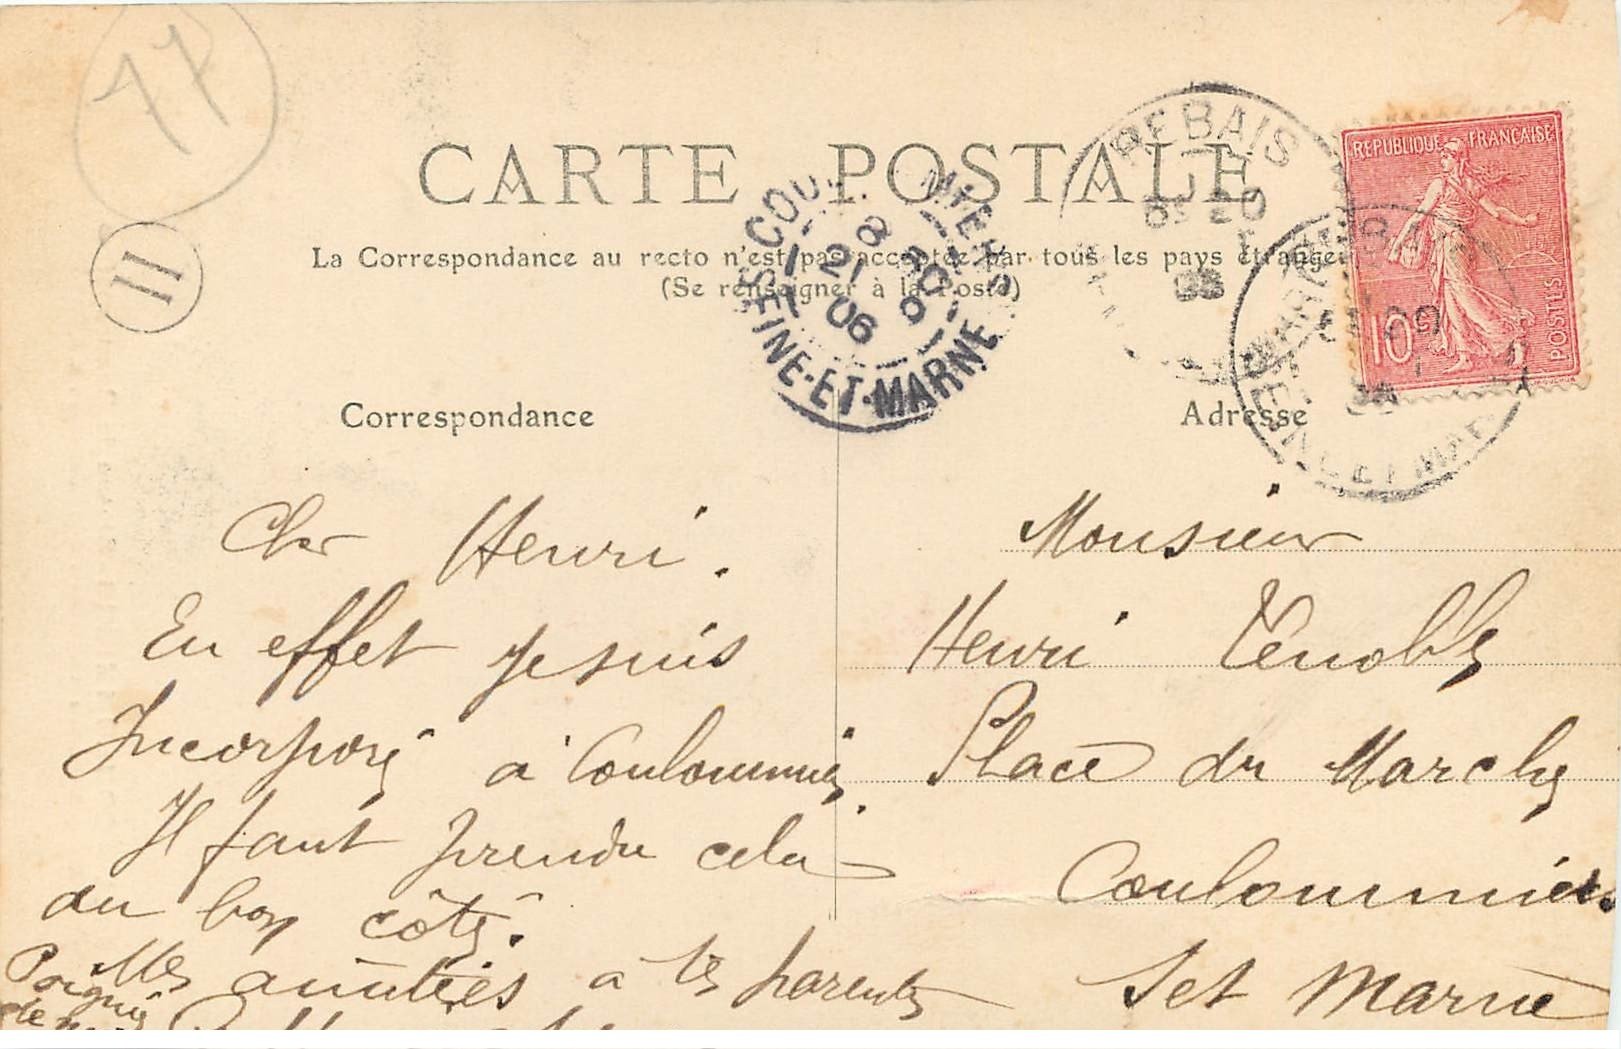 77
II
CARTE POSTALE
La Correspondance au recto n'est pas acceptée par tous les pays étrangers
(Se renseigner à la Poste)
REBAIS
COULOMMIERS
8 40
21 9
06
SEINE-ET-MARNE
REPUBLIQUE FRANÇAISE
10c
POSTES
Correspondance
Adresse
Cher Henri.
En effet je suis
Incorporé à Coulommiers.
Il faut prendre cela
du bon côté.
Mes amitiés à tes parents
Poigné
de
Monsieur
Henri Lenoble
Place du Marché
Coulommiers
S et Marne